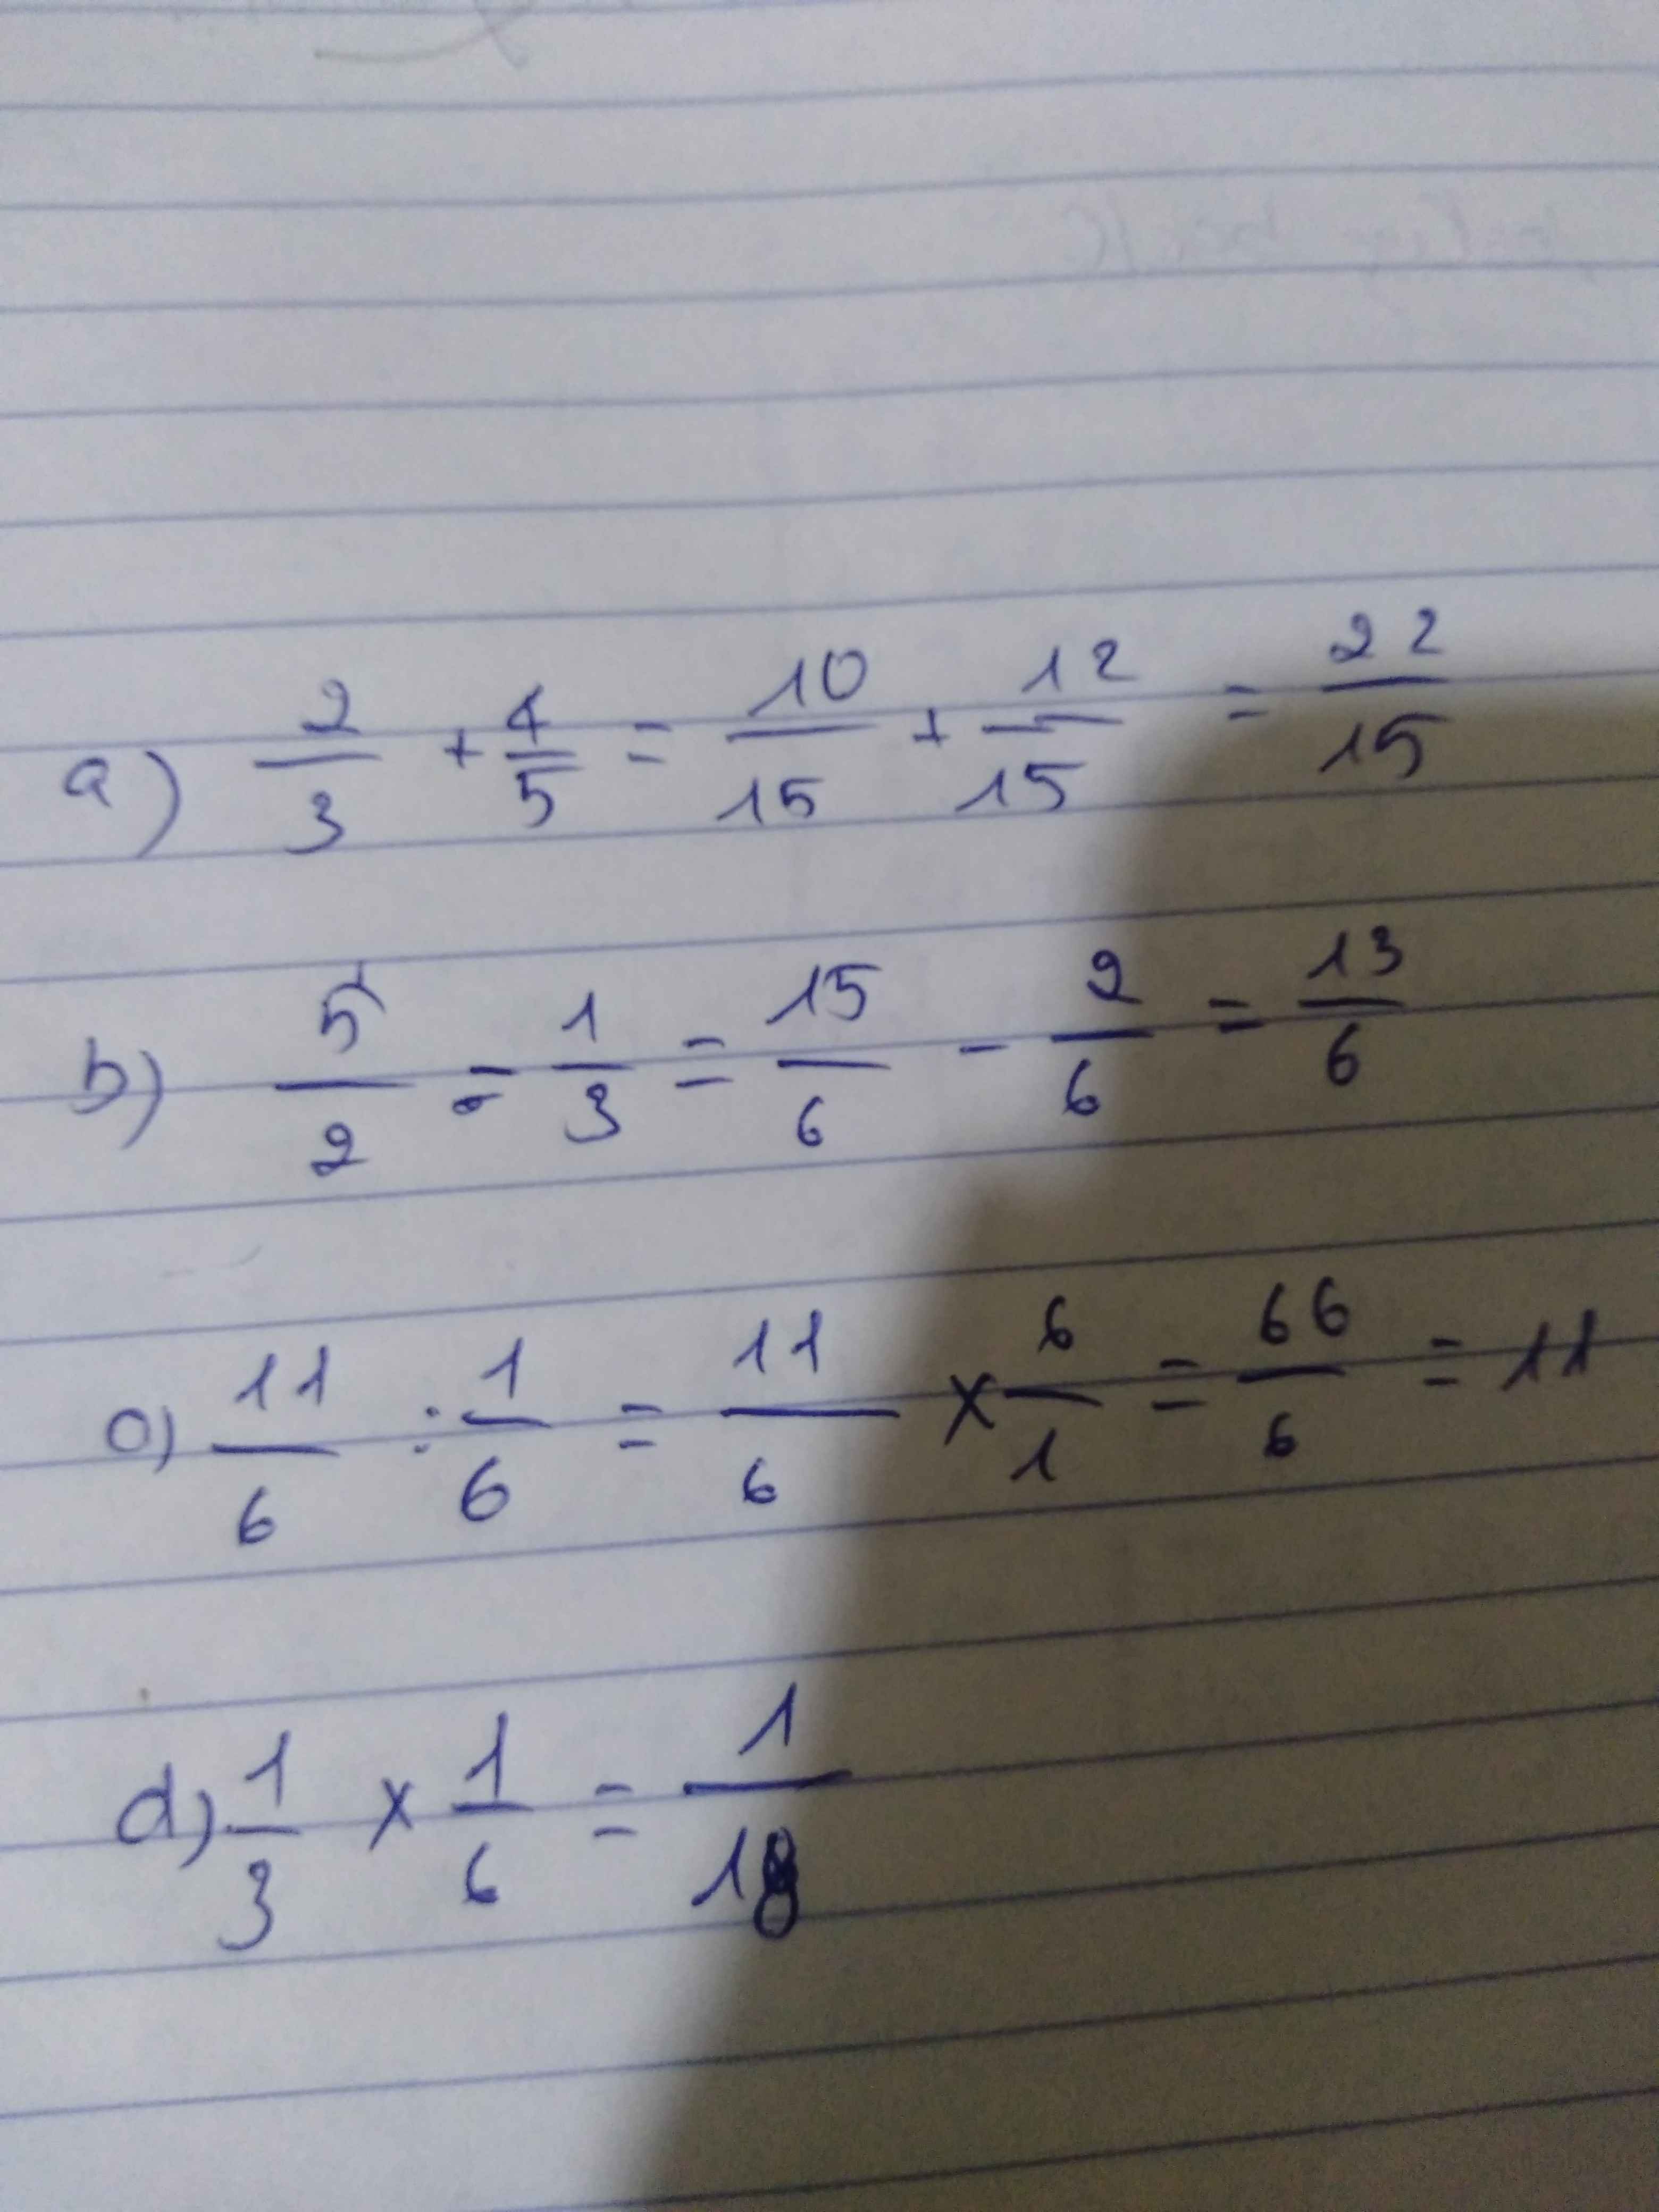 a) 2/3 + 4/5 = 10/15 + 12/15 = 22/15
b) 5/2 = 1/3 = 15/6 - 2/6 = 13/6
c) 11/6 : 1/6 = 11/6 x 6/1 = 66/6 = 11
d) 1/3 x 1/6 = 1/18